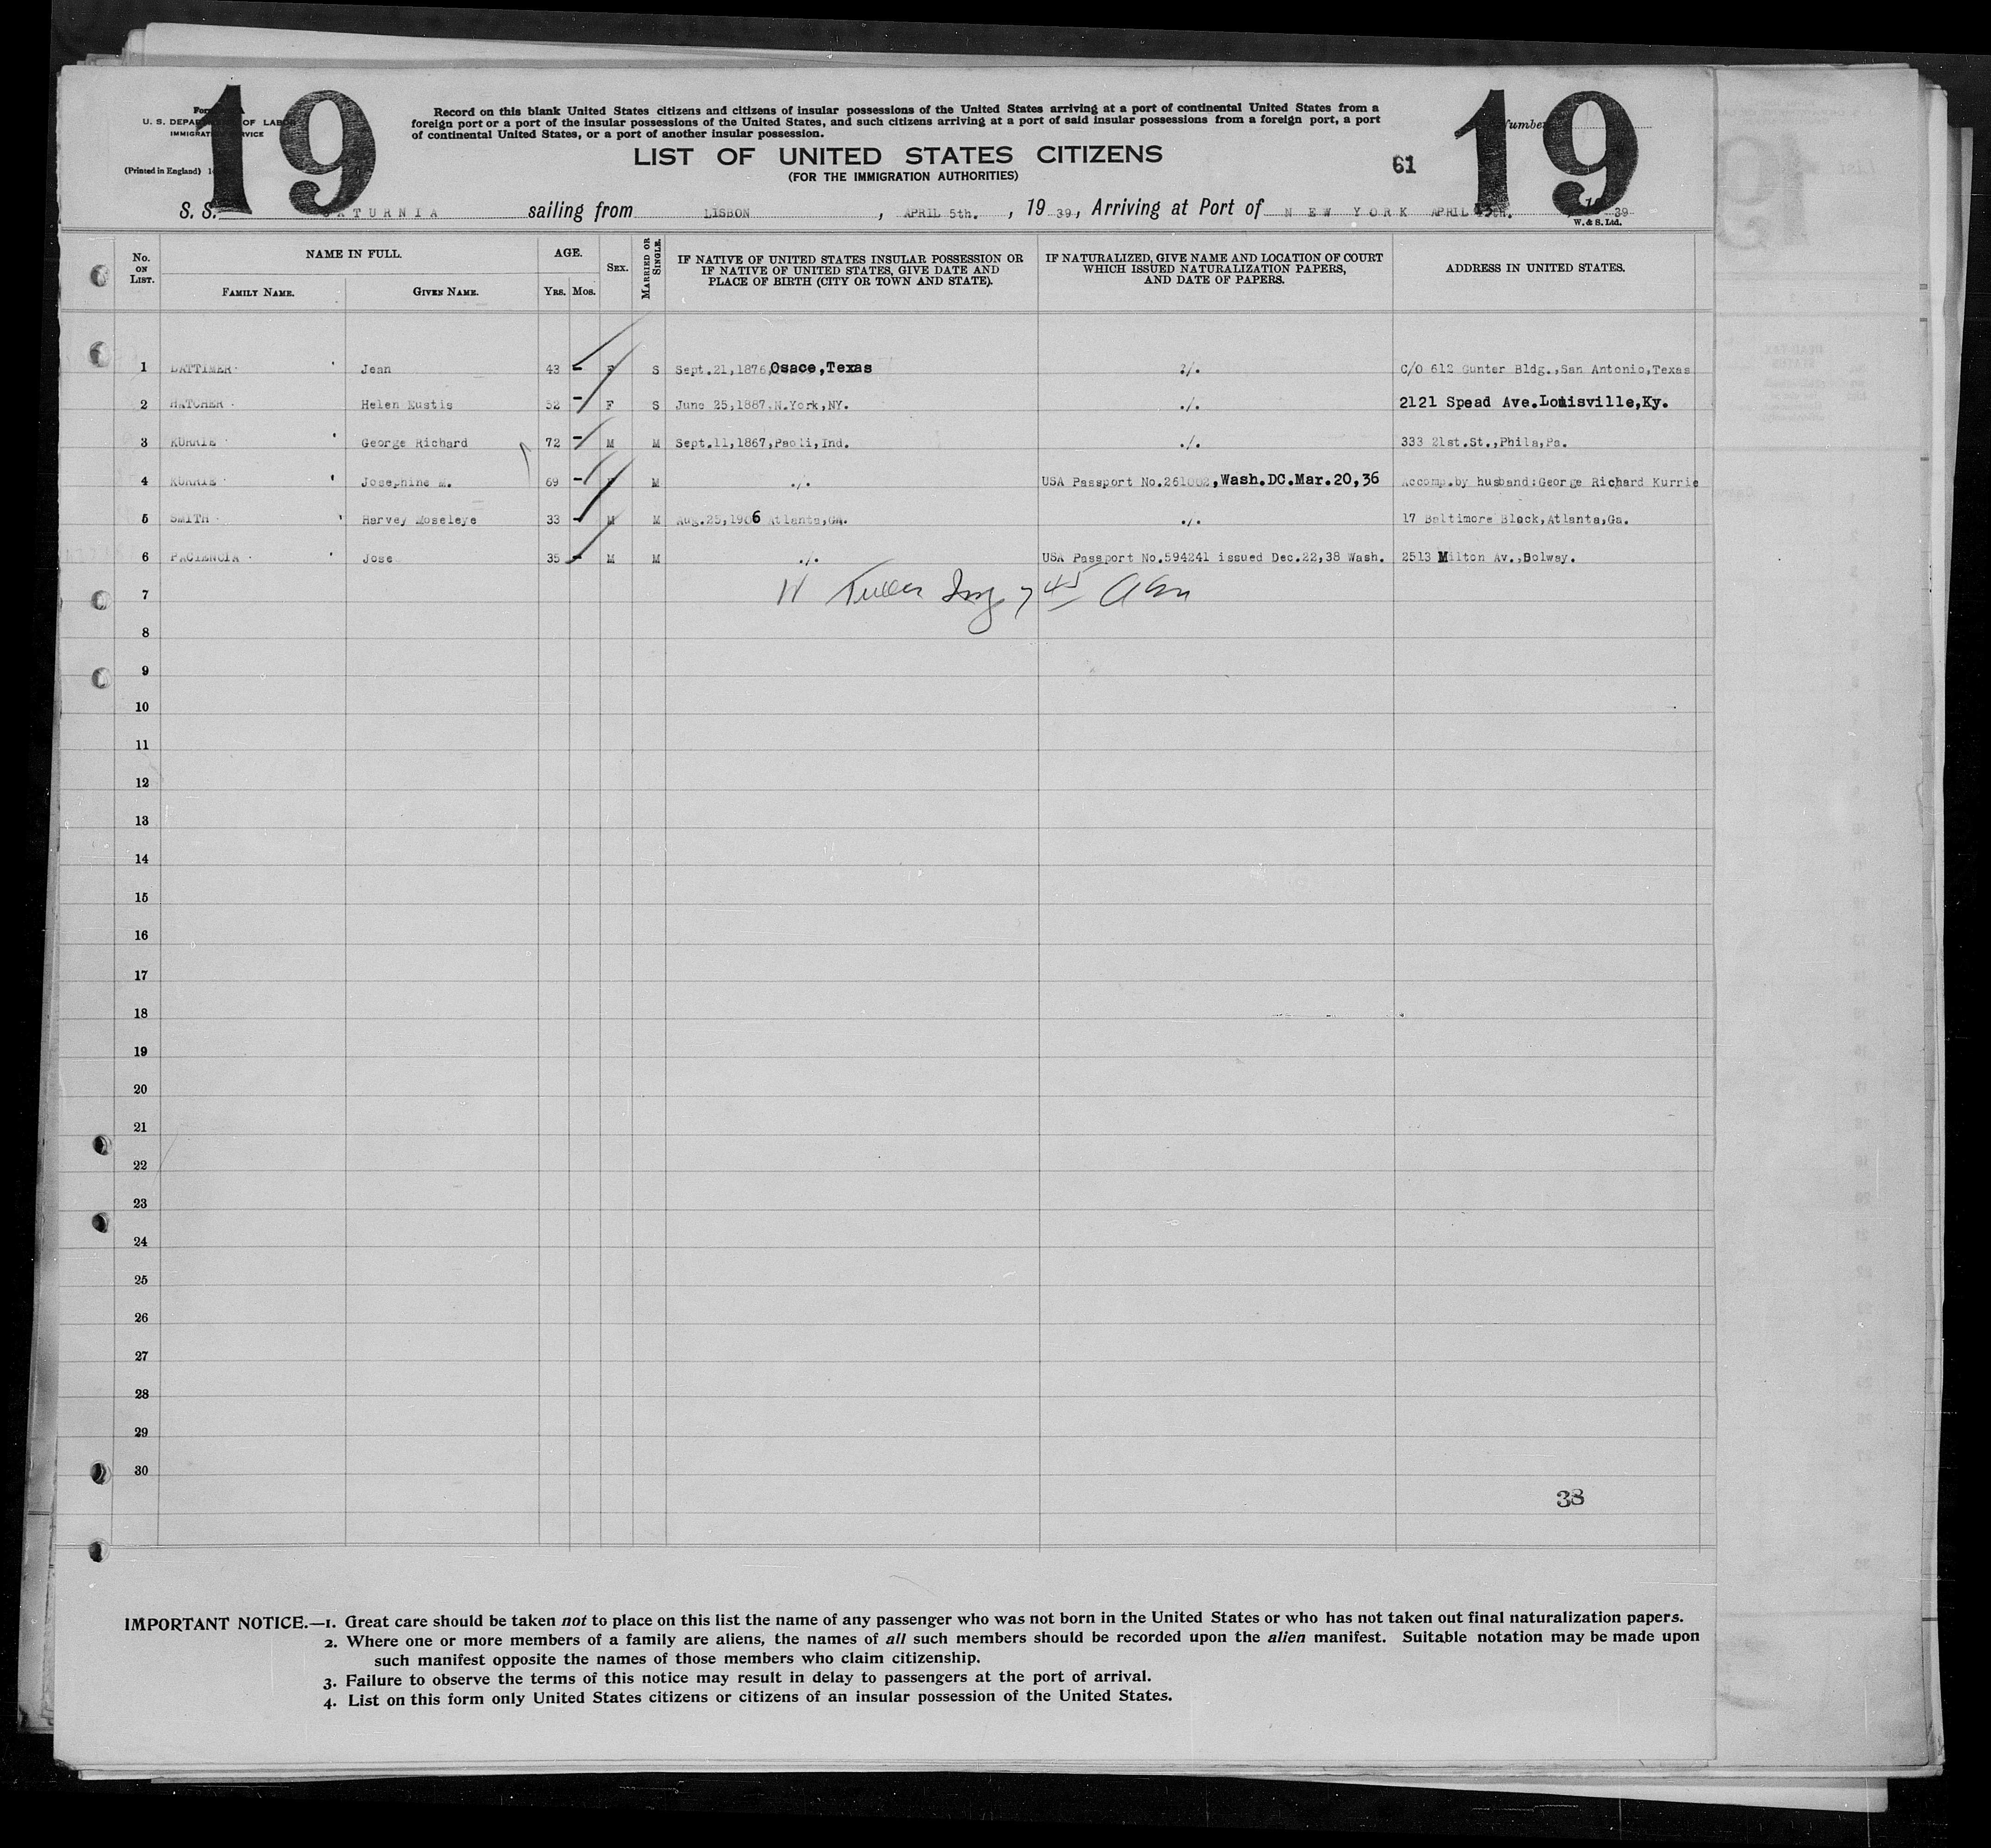 19
19
U. S. DEPA OF LABOR
IMMIGRAT SERVICE
(Printed in England)
Record on this blank United States citizens and citizens of insular possessions of the United States arriving at a port of continental United States from a
foreign port or a port of the insular possessions of the United States, and such citizens arriving at a port of said insular possessions from a foreign port, a port
of continental United States, or a port of another insular possession.
LIST OF UNITED STATES CITIZENS
(FOR THE IMMIGRATION AUTHORITIES)
61
S. S. SATURNIA sailing from LISBON, APRIL 5th., 1939, Arriving at Port of NEW YORK APRIL 39
W. & S. Ltd.
No. ON LIST. NAME IN FULL. FAMILY NAME. GIVEN NAME. AGE. YRS. MOS. SEX. MARRIED OR SINGLE. IF NATIVE OF UNITED STATES INSULAR POSSESSION OR IF NATIVE OF UNITED STATES, GIVE DATE AND PLACE OF BIRTH (CITY OR TOWN AND STATE). IF NATURALIZED, GIVE NAME AND LOCATION OF COURT WHICH ISSUED NATURALIZATION PAPERS, AND DATE OF PAPERS. ADDRESS IN UNITED STATES.
1 LATTIMER Jean 43 - F S Sept.21,1876,Osace,Texas ./. C/O 612 Gunter Bldg.,San Antonio,Texas
2 HATCHER Helen Eustis 52 - F S June 25,1887,N.York,NY. ./. 2121 Spead Ave.Louisville,Ky.
3 KURRIE George Richard 72 - M M Sept.11,1867,Paoli,Ind. ./. 333 21st.St.,Phila,Pa.
4 KURRIE Josephine M. 69 - F M ./. USA Passport No. ,Wash.DC.Mar.20,36 Accomp.by husband:George Richard Kurrie
5 SMITH Harvey Moseleye 33 - M M Aug.25,1906 Atlanta,GA. ./. 17 Baltimore Block,Atlanta,Ga.
6 PACIENCIA Jose 35 - M M ./. USA Passport No.594241 issued Dec.22,38 Wash. 2513 Milton Av.,Solway.
7
8
9
10
11
12
13
14
15
16
17
18
19
20
21
22
23
24
25
26
27
28
29
30
38
IMPORTANT NOTICE.—1. Great care should be taken not to place on this list the name of any passenger who was not born in the United States or who has not taken out final naturalization papers.
2. Where one or more members of a family are aliens, the names of all such members should be recorded upon the alien manifest. Suitable notation may be made upon
such manifest opposite the names of those members who claim citizenship.
3. Failure to observe the terms of this notice may result in delay to passengers at the port of arrival.
4. List on this form only United States citizens or citizens of an insular possession of the United States.